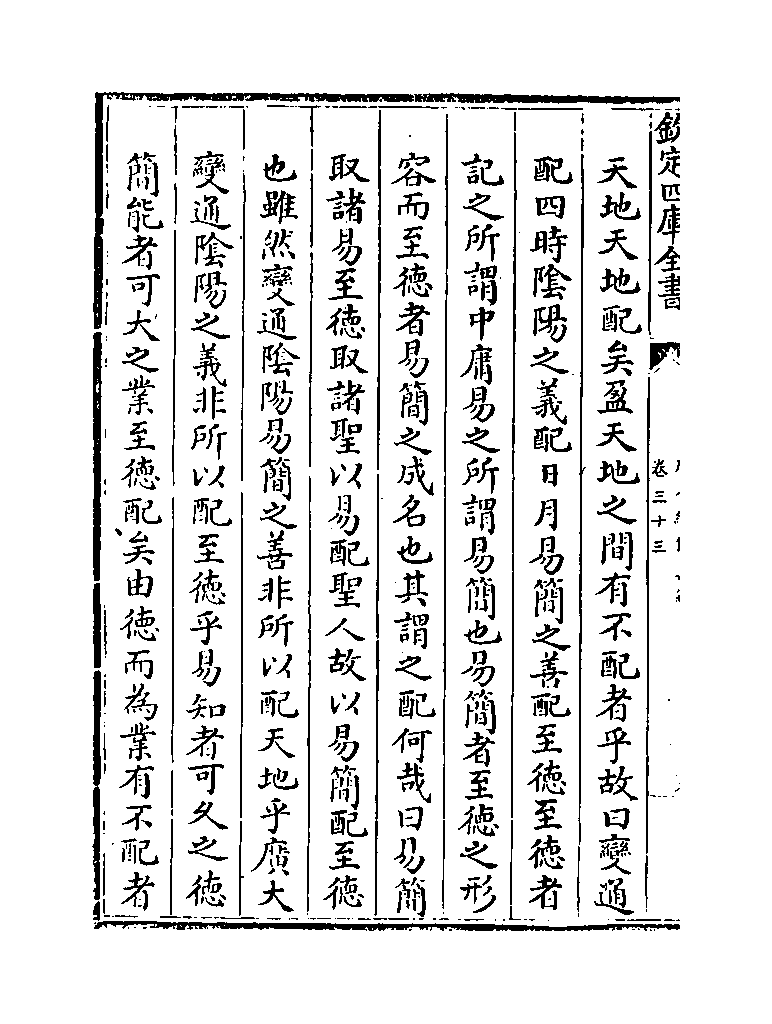 欽定四庫全書
卷三十三
天地天地配矣盈天地之間有不配者乎故曰變通
配四時陰陽之義配日月易簡之善配至德至德者
記之所謂中庸易之所謂易簡也易簡者至德之形
容而至德者易簡之成名也其謂之配何哉曰易簡
取諸易至德取諸聖以易配聖人故以易簡配至德
也雖然變通陰陽易簡之善非所以配天地乎廣大
變通陰陽之義非所以配至德乎易知者可久之德
簡能者可大之業至德配矣由德而為業有不配者